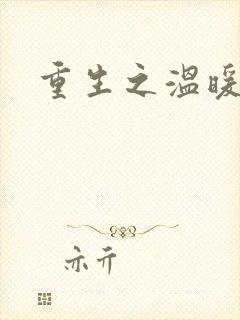 重生之温暖
亦亓